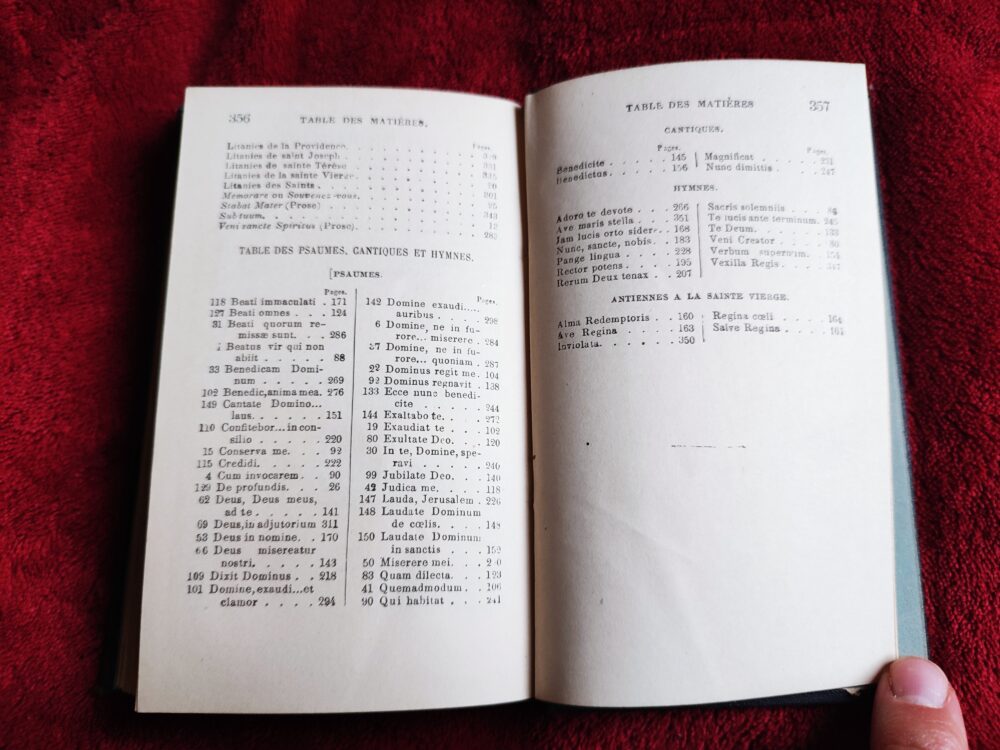 356 TABLE DES MATIÈRES.
Pages.
Litanies de la Providence.
Litanies de saint Joseph
Litanies de sainte Térèse
Litanies de la sainte Vierge
Litanies des Saints
Memorare ou Souvenez-vous.
Stabat Mater (Prose)
Sub tuum.
Veni sancte Spiritus (Prose).
TABLE DES PSAUMES, CANTIQUES ET HYMNES.
[PSAUMES.
Pages.
118 Beati immaculati . 171
127 Beati omnes . . 124
31 Beati quorum re-
missæ sunt. . . 286
1 Beatus vir qui non
abiit . . . . . 88
33 Benedicam Domi-
num . . . . . 269
102 Benedic, anima mea. 276
149 Cantate Domino...
laus. . . . . . 151
110 Confitebor... in con-
silio . . . . . 220
15 Conserva me. . . 92
115 Credidi. . . . . 222
4 Cum invocarem . . 90
129 De profundis. . . 26
62 Deus, Deus meus,
ad te . . . . . 141
69 Deus, in adjutorium 311
53 Deus in nomine. . 170
66 Deus misereatur
nostri. . . . . 143
109 Dixit Dominus . . 218
101 Domine, exaudi...et
clamor . . . . 294
Pages.
142 Domine exaudi....
auribus . . . . 298
6 Domine, ne in fu-
rore... miserere . 284
37 Domine, ne in fu-
rore... quoniam . 287
22 Dominus regit me . 104
92 Dominus regnavit . 138
133 Ecce nunc benedi-
cite . . . . . 244
144 Exaltabo te. . . . 272
19 Exaudiat te . . . 102
80 Exultate Deo. . . 120
30 In te, Domine, spe-
ravi . . . . . 240
99 Jubilate Deo. . . 140
42 Judica me. . . . 118
147 Lauda, Jerusalem . 226
148 Laudate Dominum
de cœlis. . . . 148
150 Laudate Dominum
in sanctis . . . 152
50 Miserere mei. . .
83 Quam dilecta. . . 123
41 Quemadmodum. . . 106
90 Qui habitat . . . 241
TABLE DES MATIÈRES 357
CANTIQUES.
Pages.
Benedicite . . . . . 145
Benedictus. . . . . 156
Pages.
Magnificat . . . . . 231
Nunc dimittis . . . . 247
HYMNES.
Adoro te devote . . . 266
Ave maris stella . . . 351
Jam lucis orto sidere. . 168
Nunc, sancte, nobis. . 183
Pange lingua . . . . 228
Rector potens . . . . 195
Rerum Deux tenax . . 207
Sacris solemniis . . . 84
Te lucis ante terminum. 245
Te Deum. . . . . 133
Veni Creator . . . . 80
Verbum supernum. . . 154
Vexilla Regis . . . . 347
ANTIENNES A LA SAINTE VIERGE.
Alma Redemptoris . . 160
Ave Regina . . . . 163
Inviolata. . . . . . 350
Regina cœli . . . . 164
Salve Regina . . . . 161